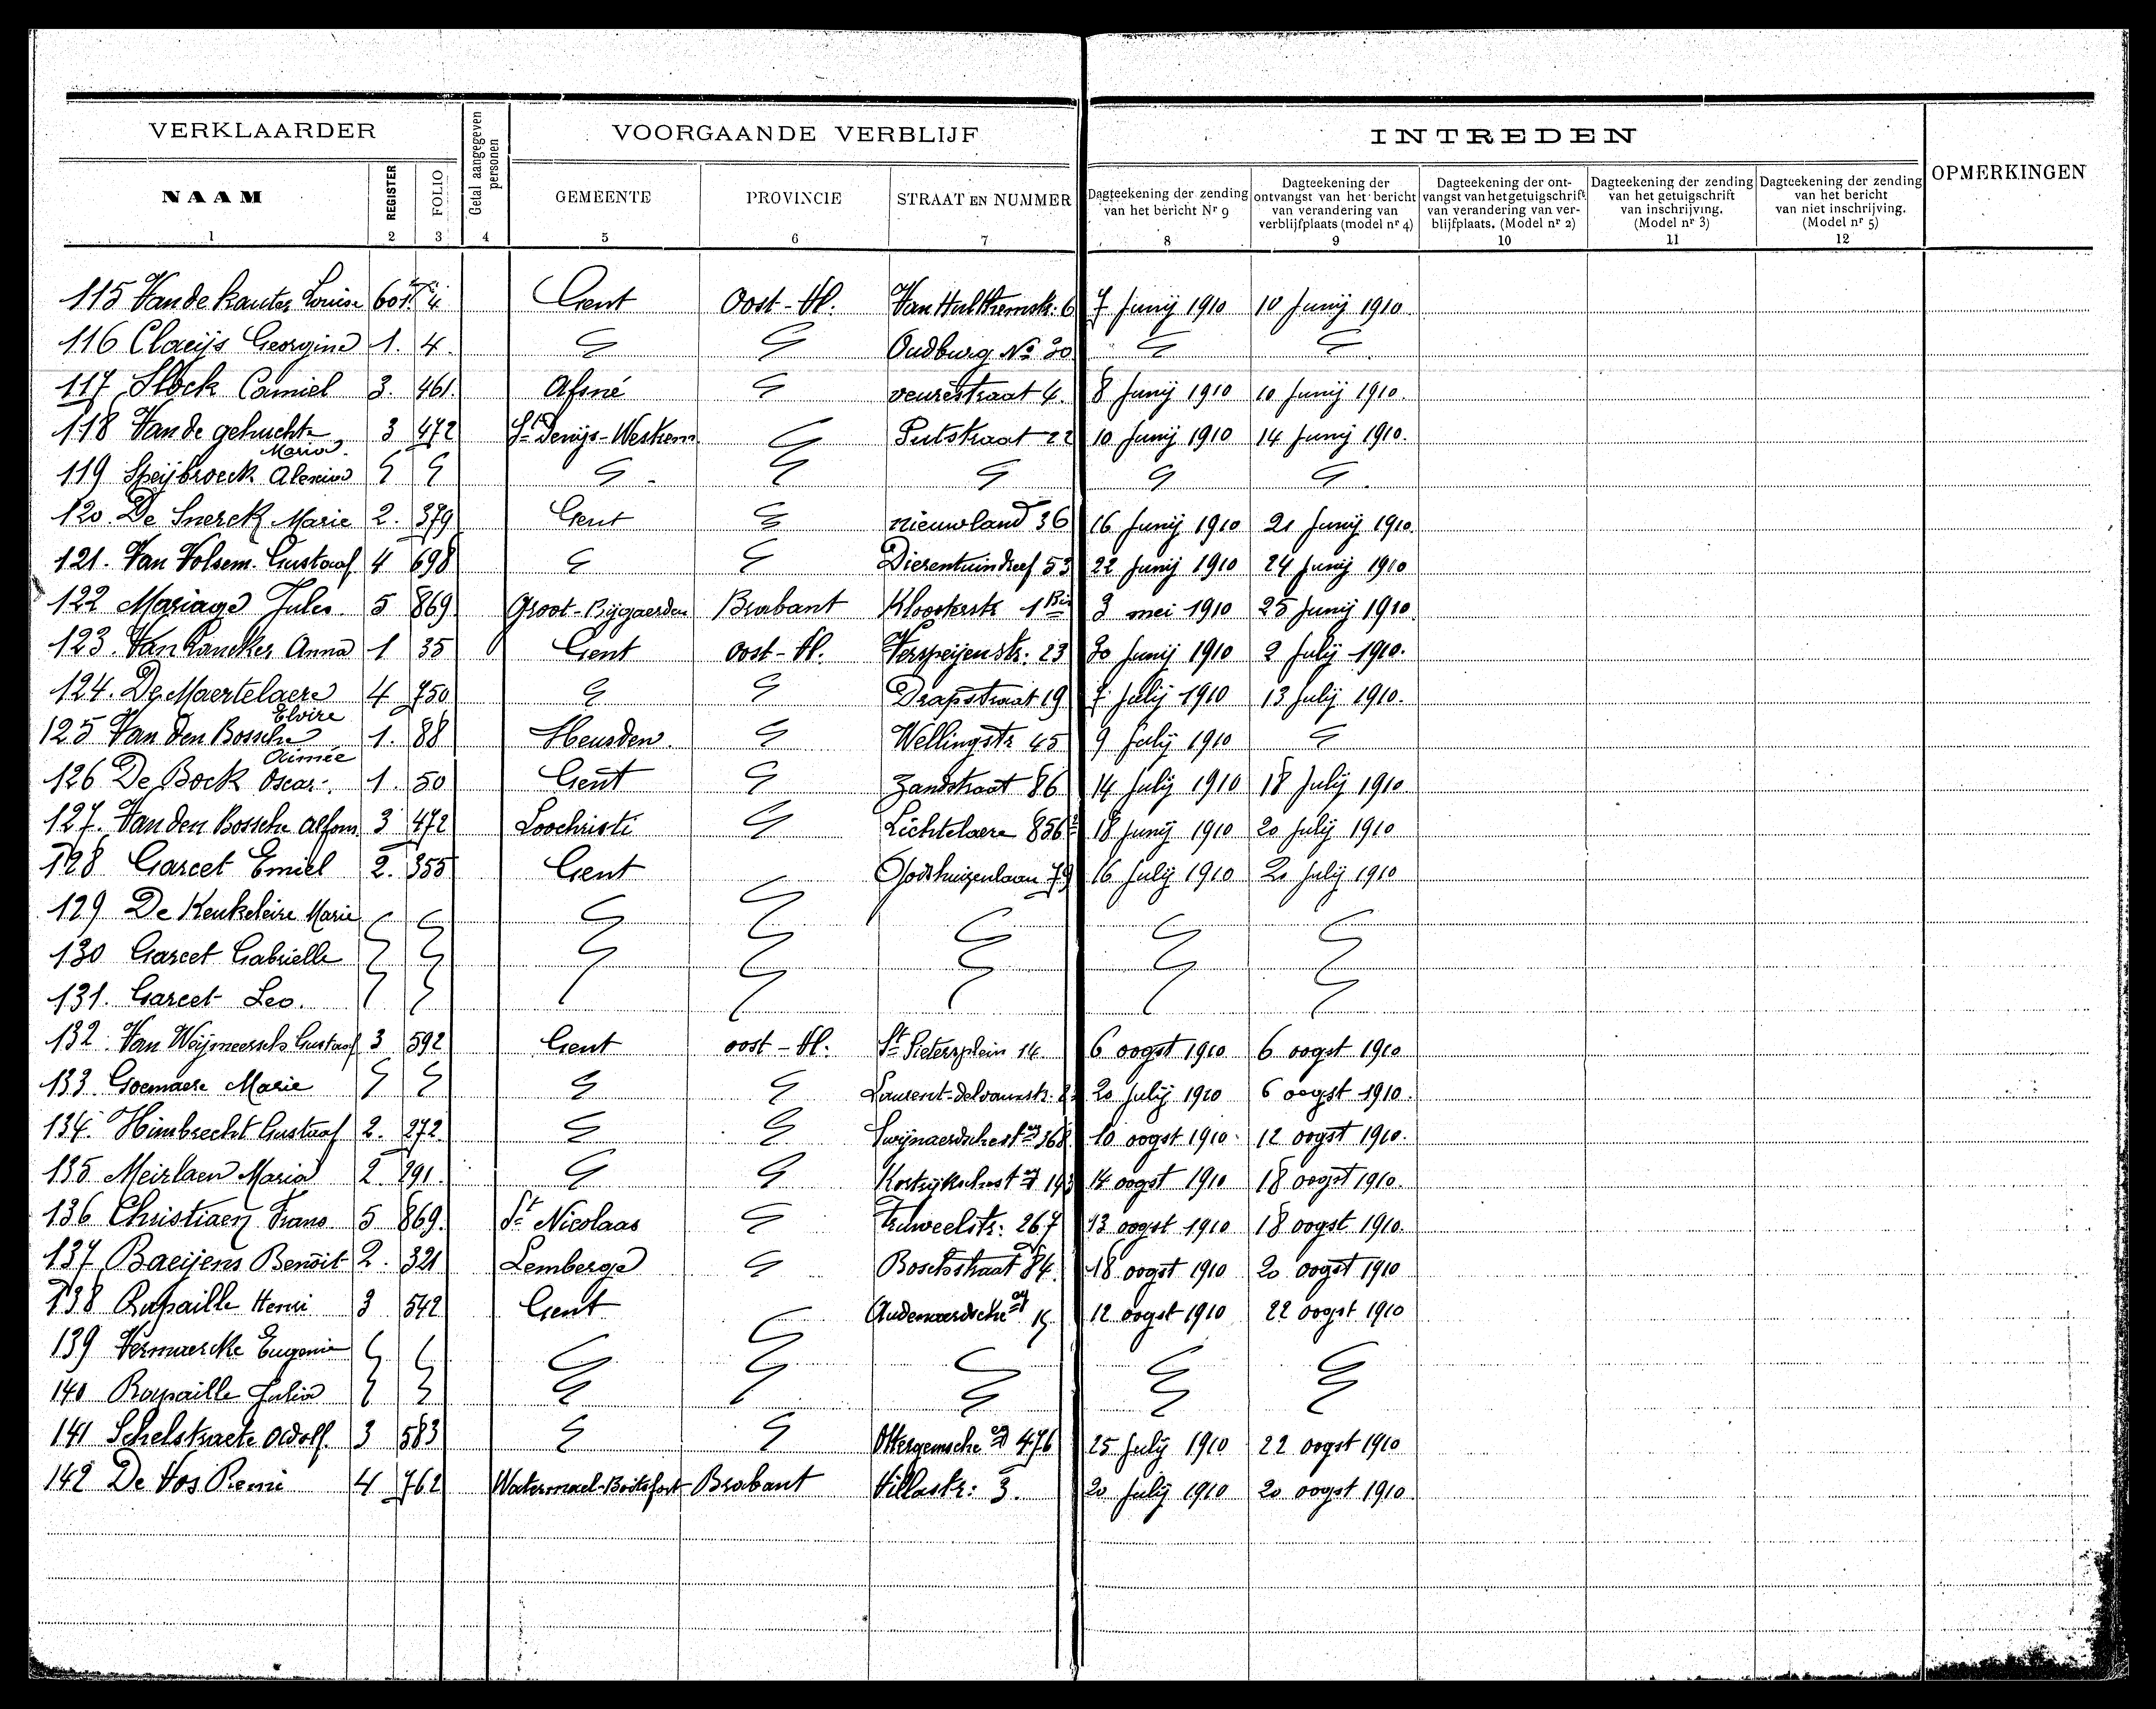 VERKLAARDER
Getal aangegeven personen
VOORGAANDE VERBLIJF
INTREDEN
OPMERKINGEN
NAAM
REGISTER
FOLIO
GEMEENTE
PROVINCIE
STRAAT EN NUMMER
Dagteekening der zending van het bericht Nr 9
Dagteekening der ontvangst van het bericht van verandering van verblijfplaats (model nr 4)
Dagteekening der ontvangst van het getuigschrift van verandering van verblijfplaats. (Model nr 2)
Dagteekening der zending van het getuigschrift van inschrijving. (Model nr 3)
Dagteekening der zending van het bericht van niet inschrijving. (Model nr 5)
1 2 3 4 5 6 7 8 9 10 11 12
115 Van de kauter Louise 601. 4 Gent Oost-Vl. Van Hulthemstr: 6 7 Junij 1910 10 Junij 1910
116 Claeijs Georgina 1. 4. Oudburg No 30
117 Slock Camiel 3. 461. Afsné veurestraat 4. 8 Junij 1910 10 Junij 1910.
118 Van de gehuchte Maria. 3 472 St Denijs-Westrem Putstraat 22 10 Junij 1910 14 Junij 1910.
119 Speijbroeck Alexina
120. De Snerck Marie 2. 379 Gent nieuwland 36 16 Junij 1910 21 Junij 1910.
121. Van Volsem. Gustaaf 4 698 Dierentuindreef 53 22 Junij 1910 24 Junij 1910
122 Mariage Jules 5 869 Groot-Bijgaerden Brabant Kloosterstr 1 Bis 3 mei 1910 25 Junij 1910
123. Van Rancker Anna 1 35 Gent oost-Vl. Verspeijenstr: 23 30 Junij 1910 2 Julij 1910.
124. De Maertelaere Elvire 4 750 Drapstraat 19 7 Julij 1910 13 Julij 1910.
125 Van den Bossche Aimée 1. 88 Heusden. Wellingstr 45 9 Julij 1910
126 De Bock Oscar. 1. 50 Gent Zandstraat 86 14 Julij 1910 18 Julij 1910
127. Van den Bossche Alfons 3 472 Loochristi Lichtelaere 856 18 Junij 1910 20 Julij 1910
128 Garcet Emiel 2. 355 Gent Godshuizenlaan 79 16 Julij 1910 21 Julij 1910
129 De Keukeleire Marie
130 Garcet Gabrielle
131. Garcet Leo.
132. Van Weijmeersch Gustaaf 3 592 Gent oost-Vl. St Pietersplein 14 6 oogst 1910 6 oogst 1910
133. Goemaere Marie Laurent-delvauxstr. 20 Julij 1910 6 oogst 1910.
134. Himbrecht Gustaaf 2. 272. Swijnaerdschestwg 368 10 oogst 1910. 12 oogst 1910.
135 Meirlaen Maria 2. 291. Kortrijkschest wg 193 14 oogst 1910 18 oogst 1910.
136 Christiaen Frans 5 869. St Nicolaas Truweelstr: 267 13 oogst 1910 18 oogst 1910.
137 Baeijens Benoit 2. 321 Lemberge Boschstraat 84. 18 oogst 1910 20 oogst 1910
138 Rupaille Henri 3 542 Gent Audenaerdsche wg 15 12 oogst 1910 22 oogst 1910
139 Vermaercke Eugenie
140 Rupaille Julia
141 Schelstraete Odolf. 3 583 Ottergemsche wg 476 25 Julij 1910 22 oogst 1910
142 De Vos Remi 4 762 Watermael-Boitsfort Brabant Villastr: 3. 20 Julij 1910 20 oogst 1910.